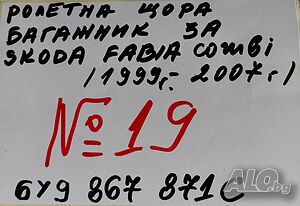 РОЛЕТНА ЩОРА
БАГАЖНИК ЗА
SKODA FABIA COMBI
/1999г.- 2007г/
№19
6Y9 867 871C
ALO.bg